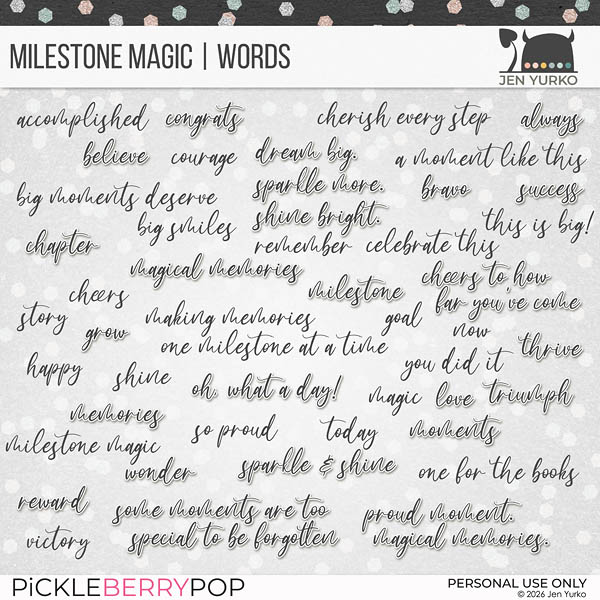 MILESTONE MAGIC | WORDS
JEN YURKO
accomplished congrats cherish every step always
believe courage dream big. a moment like this
big moments deserve sparkle more. bravo success
big smiles shine bright. this is big!
chapter remember celebrate this
magical memories cheers to how
cheers milestone far you've come
story making memories goal now
grow one milestone at a time thrive
happy shine you did it
oh, what a day! magic love triumph
memories so proud today moments
milestone magic
wonder sparkle & shine one for the books
reward some moments are too proud moment.
victory special to be forgotten magical memories.
PiCKLEBERRYPOP
PERSONAL USE ONLY
© 2026 Jen Yurko